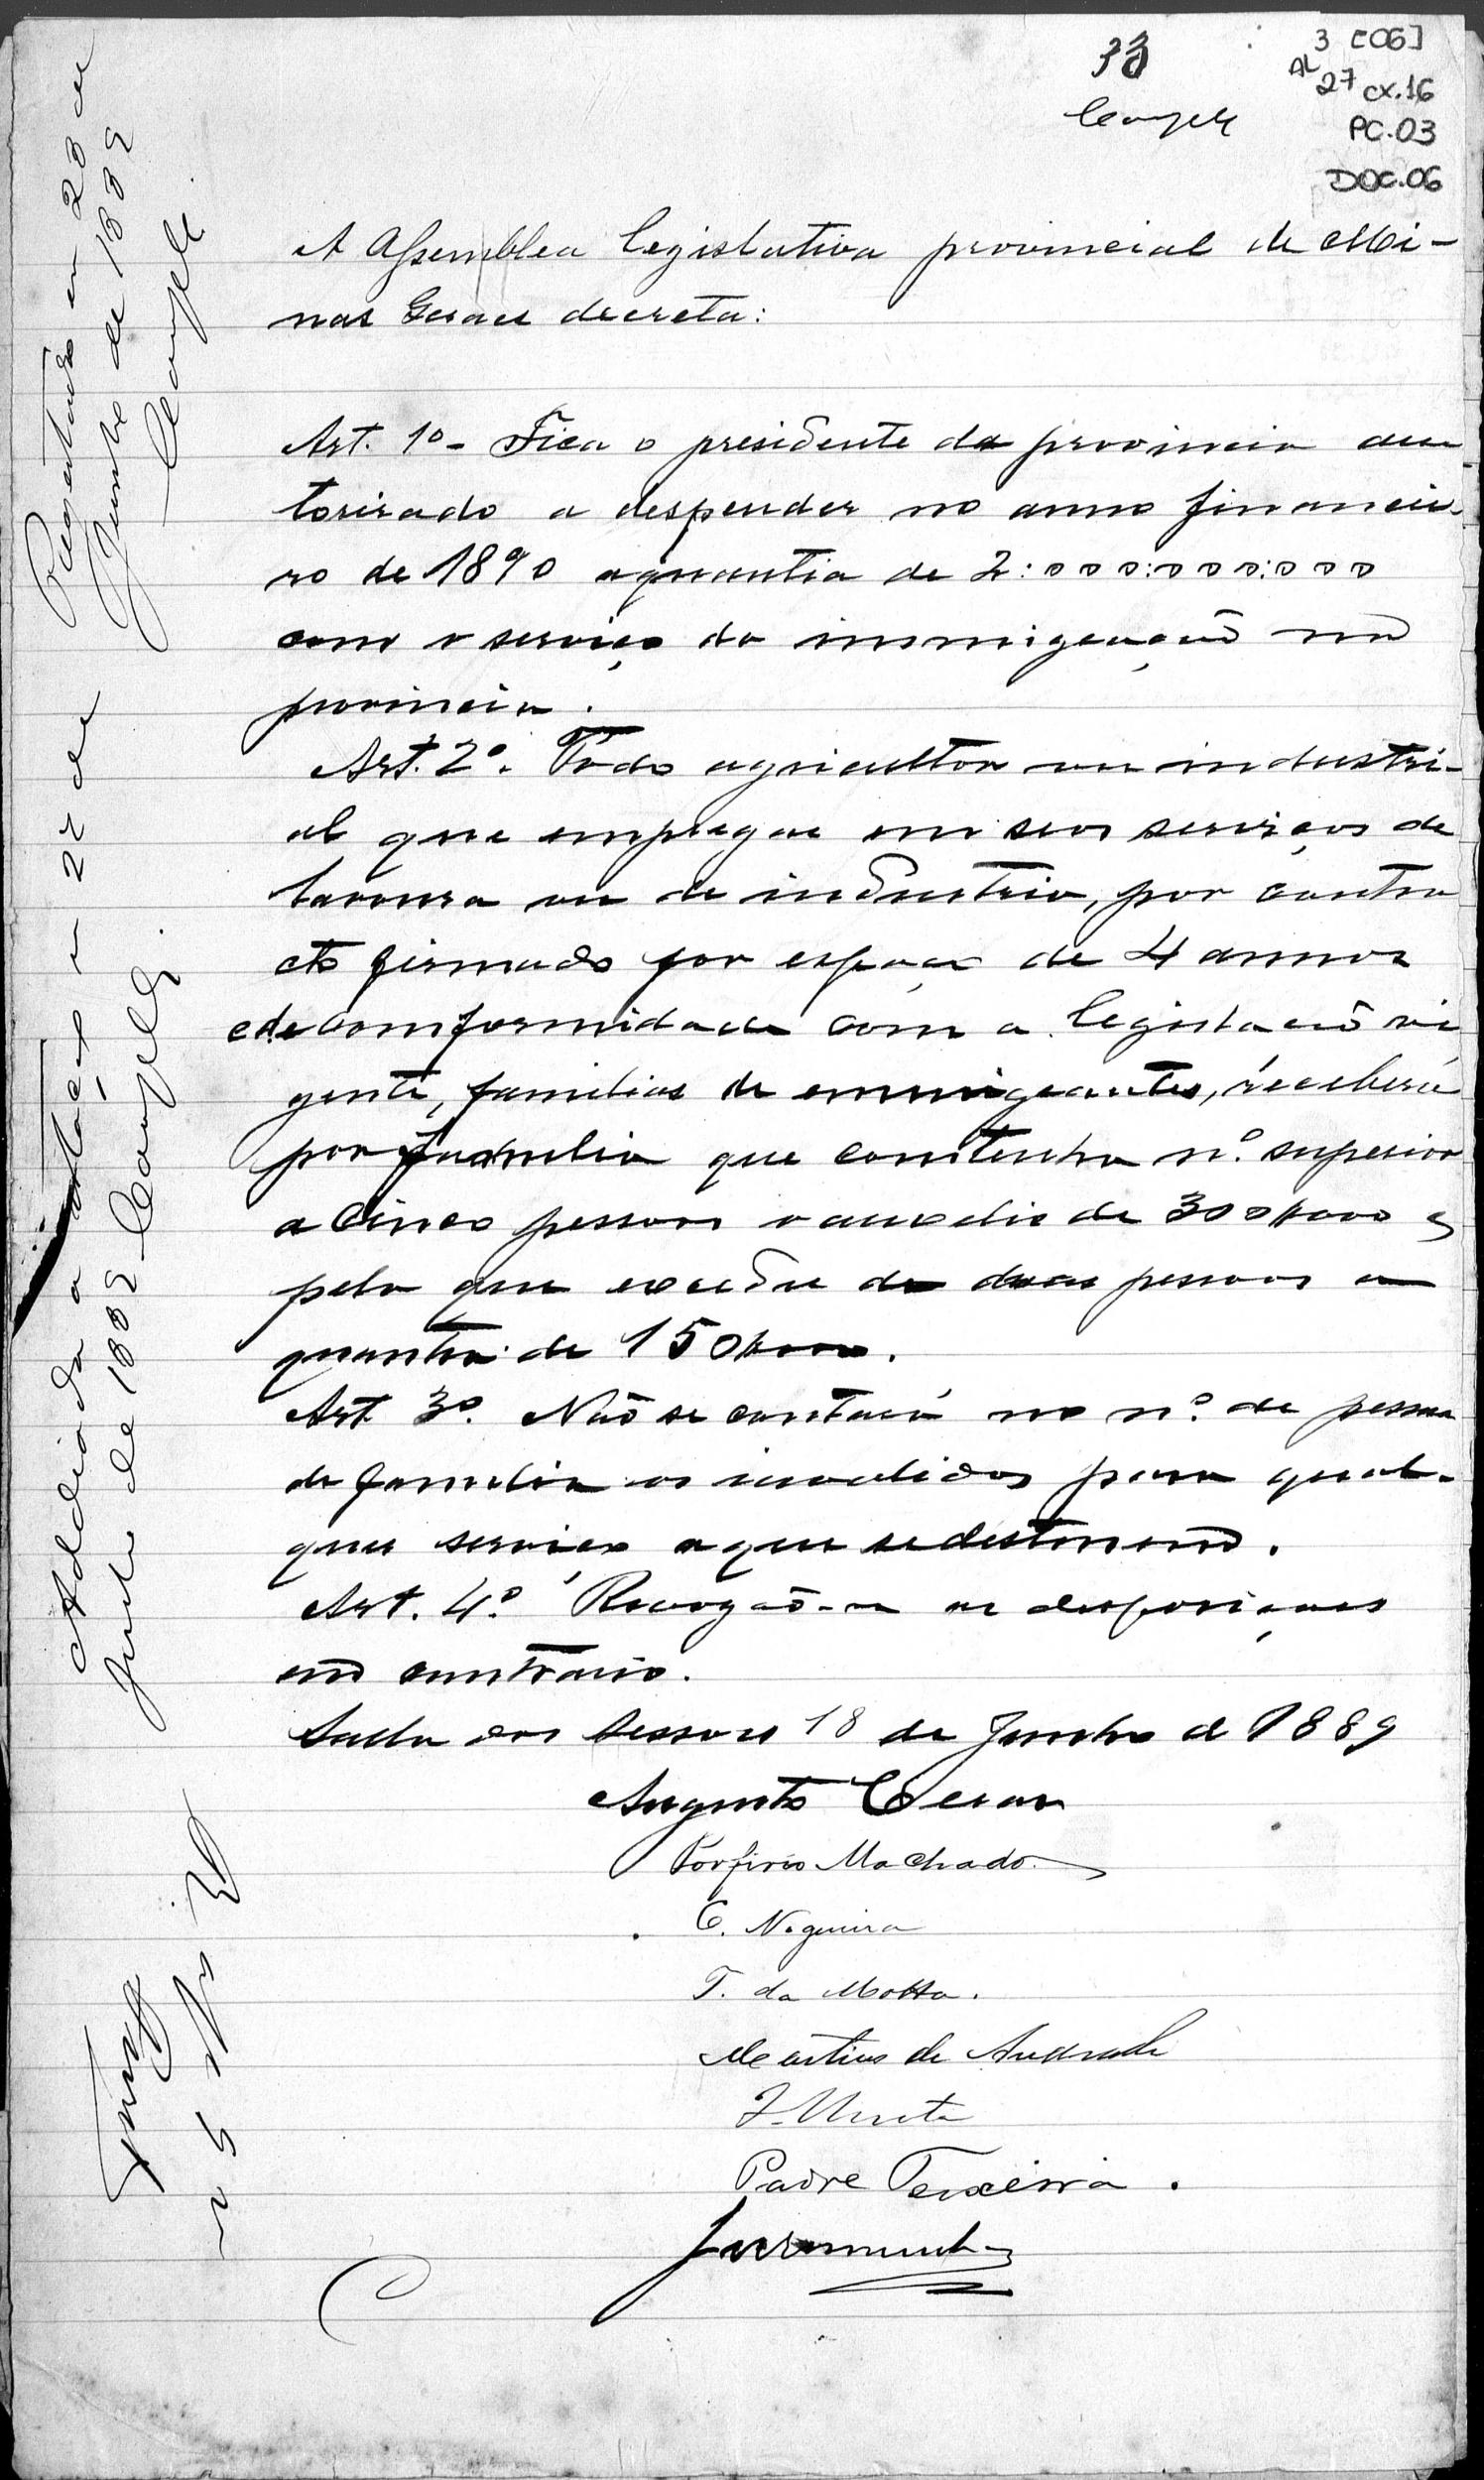 33
3 [06]
AL 27 cx.16
PC.03
DOC.06
A Assemblea legislativa provincial de Mi-
nas Geraes decreta:
Art. 1º - Fica o presidente da provincia au
torisado a despender no anno financei-
ro de 1890 a quantia de 2:000:000:000
com o serviço da immigração na
provincia.
Art. 2º. Todo agricultor ou industri-
al que empregar em seos serviços de
lavoura ou de industria, por contra
cto firmado por espaço de 4 annos
e de comformidade com a legislação vi
gente, familias de emmigrantes, receberá
por familia que contenha nº. superior
a cinco pessoas o auxilio de 300$000 e
pela que exceder de duas pessoas a
quantia de 150$000.
Art. 3º. Não se contará no nº. de pessoas
da familia os invalidos para qual-
quer serviço a que se destinem.
Art. 4º. Revogão-se as desposições
em contrario.
Salla das sessoes 18 de Junho de 1889
Augusto Cesar
Porfirio Machado
C. Nogueira
T. da Motta.
Martins de Andrade
Padre Teixeira.
Presentado em 28 de
Junho de 1889
Addiada a votação a 22 de
Junho de 1889